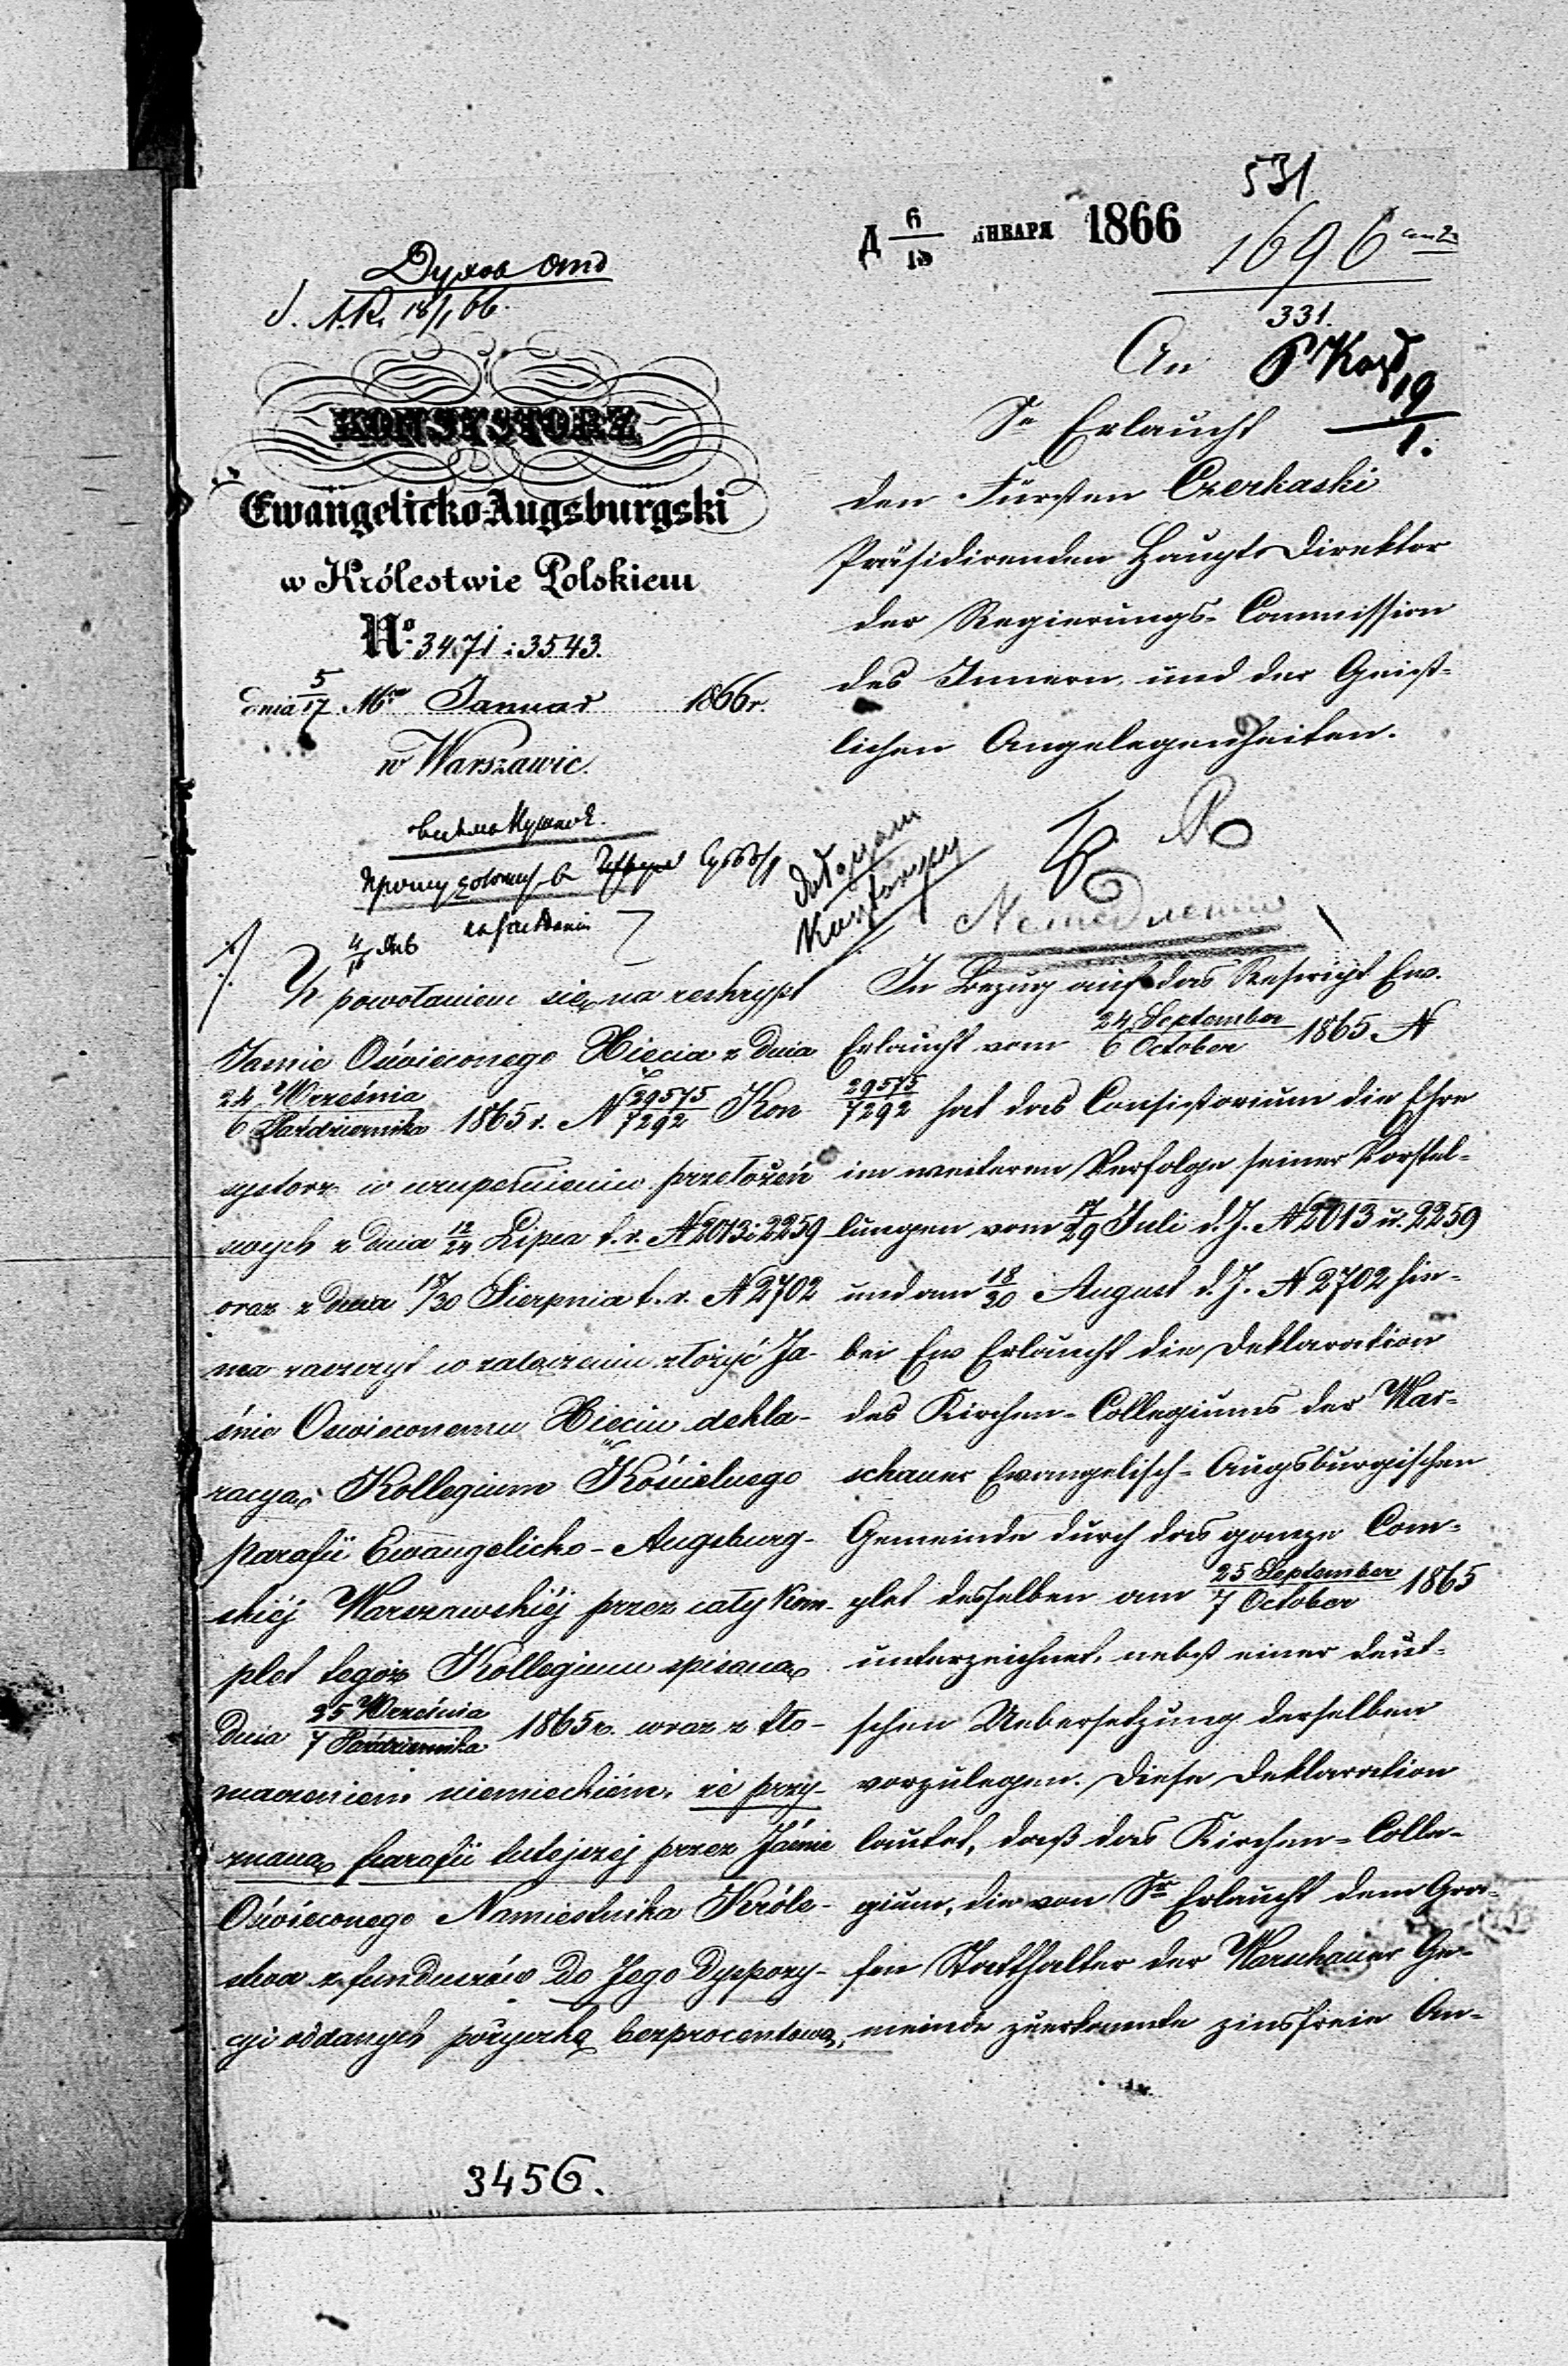 531
Д 6/18 ЯНВАРЯ 1866
1696
331.
Духов отд
A.R. 18/1 66.
KONSYSTORZ
Ewangelicko-Augsburgski
w Królestwie Polskiem
No. 3471 i 3543.
dnia 5/17 Mca Januar 1866 r.
w Warszawie.
An
19/1.
Sr Erlaucht
den Fürsten Czerkaski
Präsidirenden Haupt-Direktor
der Regierungs-Commission
des Innern und der Geist-
lichen Angelegenheiten.
Прошу
Немедленно
Z powołaniem się na reskrypt
Jaśnie Oświeconego Xięcia z dnia
24 Września/6 Października 1865 r. N 29575/7292 Kon
systorz w uzupełnieniu przełożeń
swych z dnia 12/24 Lipca t. r. N 2013 i 2259
oraz z dnia 18/30 Sierpnia t. r. N 2702
ma zaszczyt w załączeniu złożyć Ja-
śnie Oświeconemu Xięciu dekla-
racyą Kollegium Kościelnego
Parafii Ewangelicko-Augsburg-
skiéj Warszawskiéj przez cały kom-
plet tegoż Kollegium spisaną
dnia 25 Września/7 Października 1865 r. wraz z tło-
maczeniem niemieckiém, że przy-
znaną parafii tutejszej przez Jaśnie
Oświeconego Namiestnika Króle-
stwa z funduszów do Jego dyspozy-
cyi oddanych pożyczkę bezprocentową,
In Bezug auf das Rescript Ew.
Erlaucht vom 24 September/6 October 1865 N
29575/7292 hat das Consistorium die Ehre
im weiteren Verfolge seiner Vorstel-
lungen vom 17/29 Juli d. J. N 2013 u. 2259
und am 18/30 August d. J. N 2702 hie-
bei Ew Erlaucht die Deklaration
des Kirchen-Collegiums der War-
schauer Evangelisch-Augsburgischen
Gemeinde durch das ganze Com-
plet desselben am 25 September/7 October 1865
unterzeichnet, nebst einer deut-
schen Uebersetzung derselben
vorzulegen. Diese Deklaration
lautet, daß das Kirchen-Colle-
gium, die von Sr Erlaucht dem Gra-
fen Statthalter der Warschauer Ge-
meinde zuerkannte zinsfreie An-
3456.